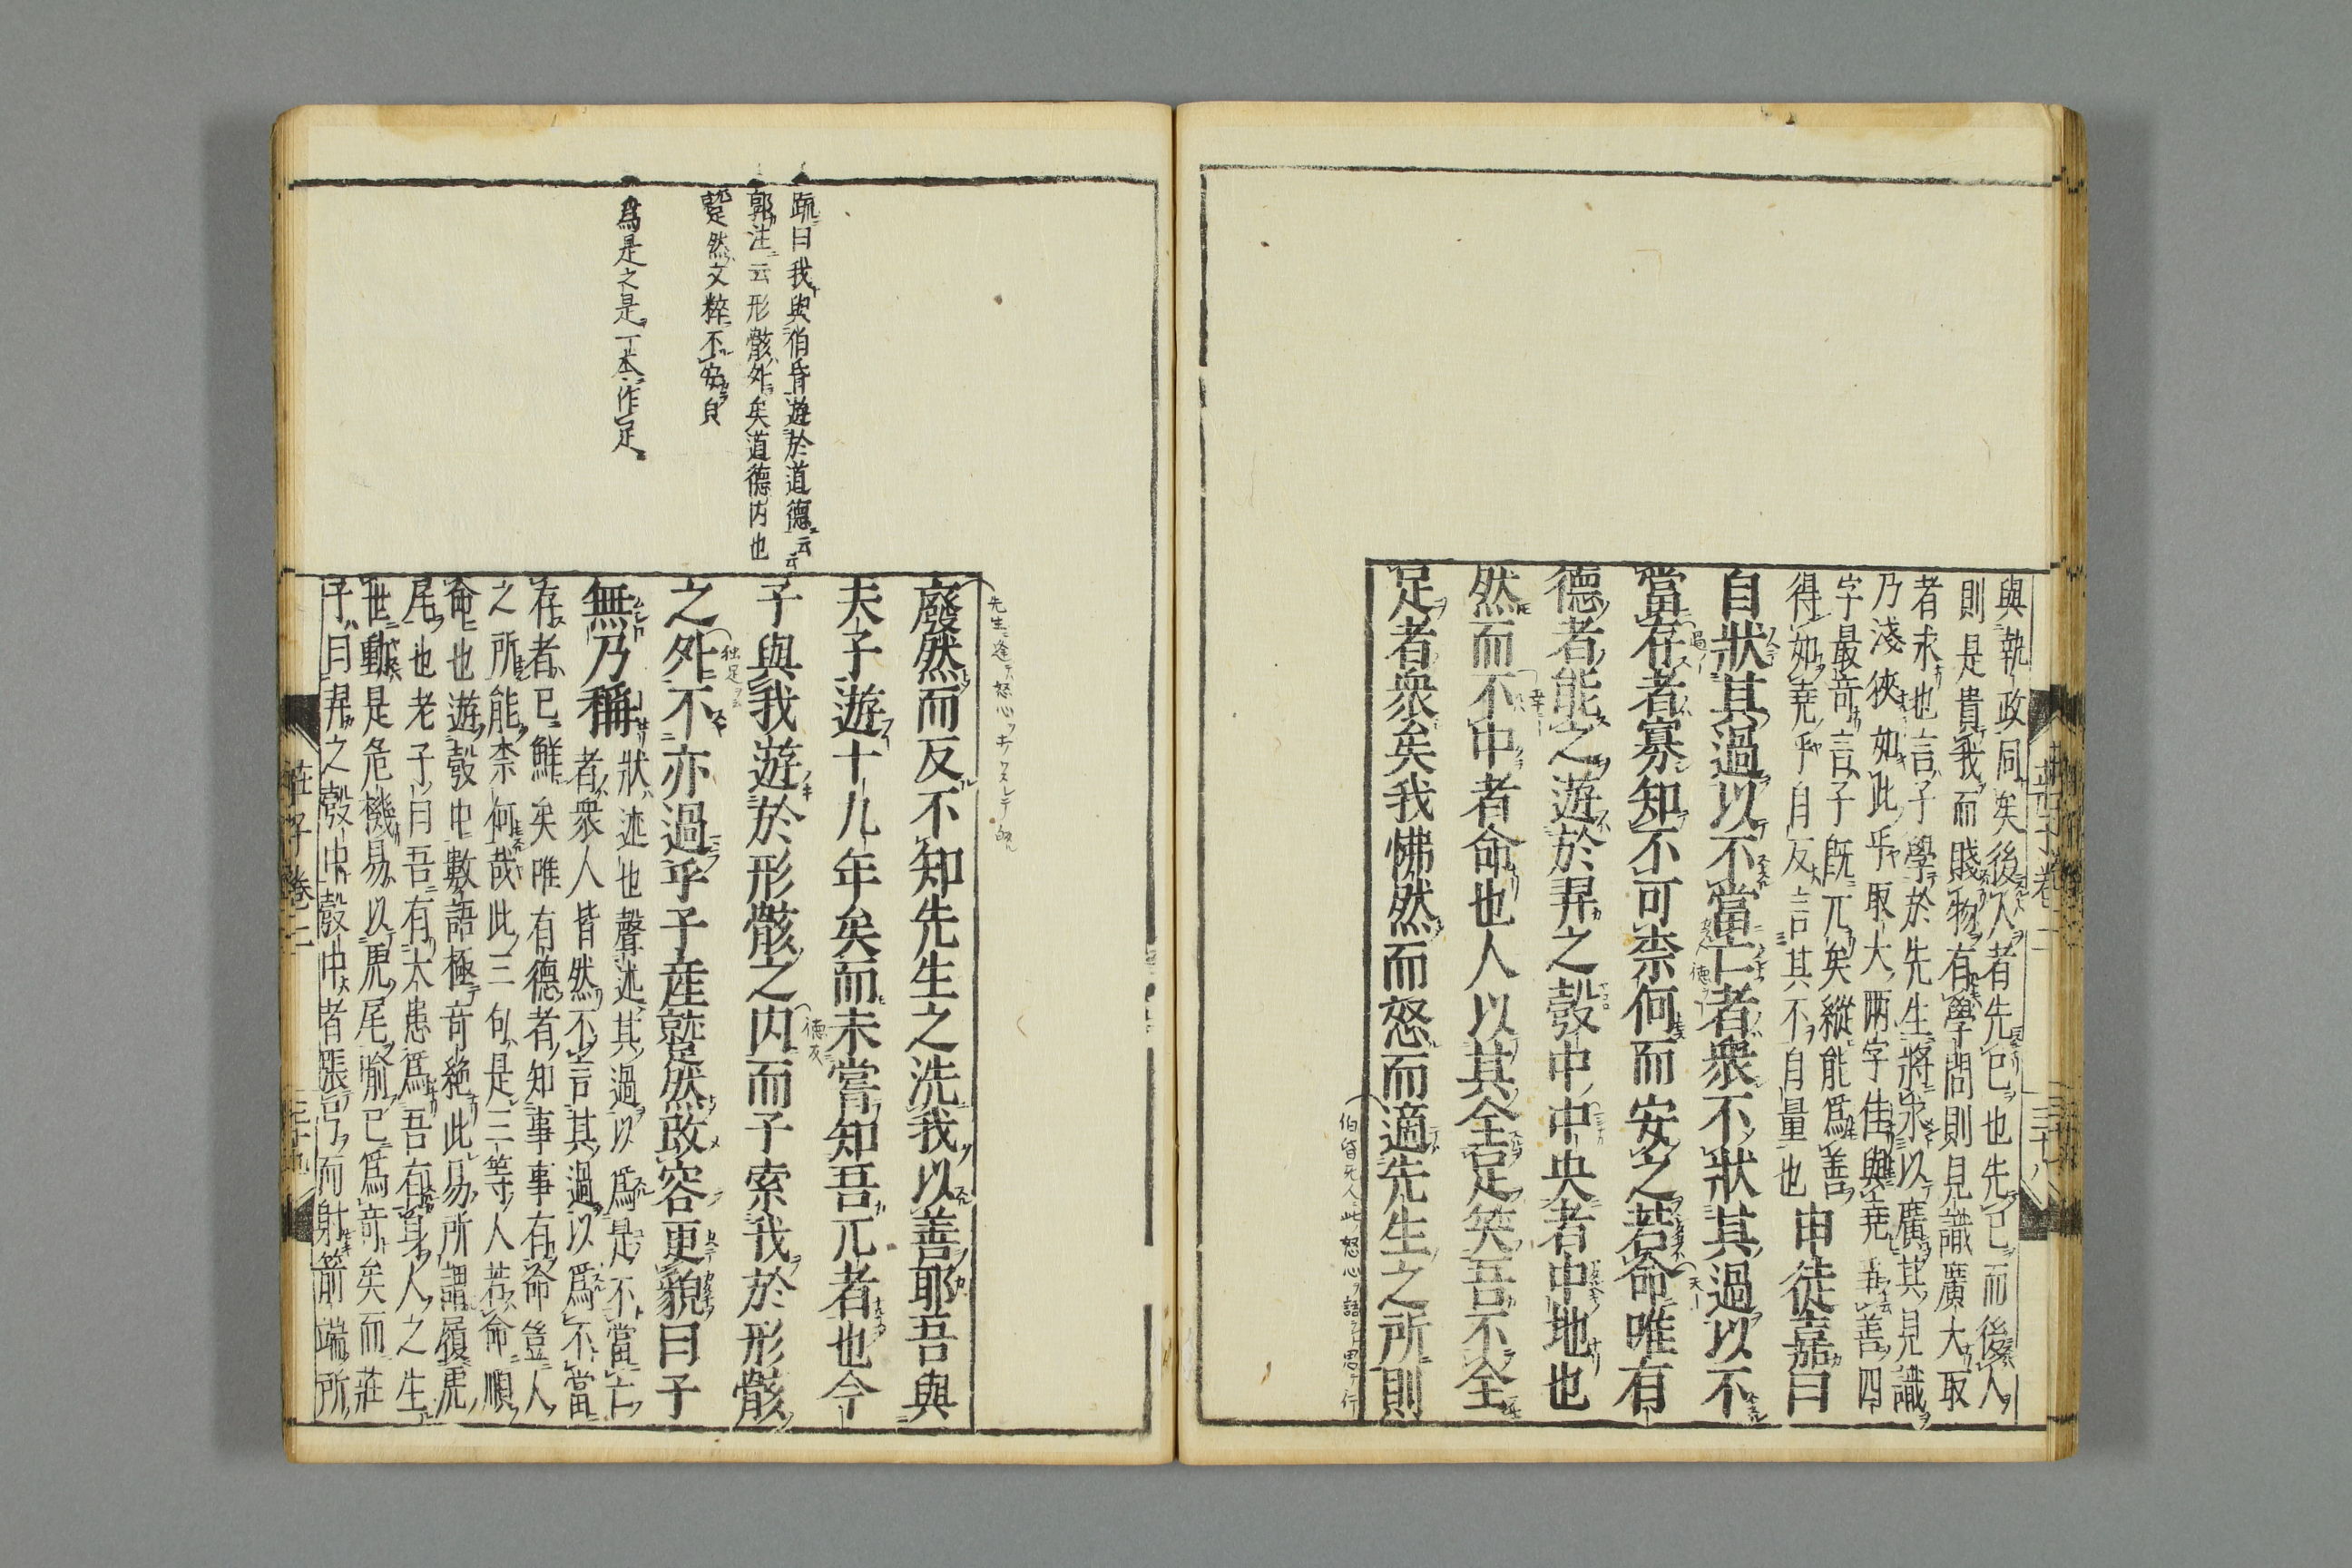 與執政同矣後人者先己也先己而後人
則是貴我而賤物有學問則見識廣大取
者求也言子學於先生將求以廣其見識
乃淺狹如此乎取大兩字佳與堯爭善四
字最奇言子既兀矣縱能爲善
得如堯乎自反言其不自量也
申徒嘉曰
自狀其過以不當亡者衆不狀其過以不
當存者寡知不可柰何而安之若命唯有
德者能之遊於羿之彀中中央者中地也
然而不中者命也人以其全足笑吾不全
足者衆矣我怫然而怒而適先生之所則
莊子卷二
三十八
疏曰我與伯昏遊於道德云云
郭注云形骸外矣道德内也
蹵然文粹不安皃
爲是之是一本作足
廢然而反不知先生之洗我以善耶吾與
夫子遊十九年矣而未嘗知吾兀者也今
子與我遊於形骸之内而子索我於形骸
之外不亦過乎子産蹵然改容更貌曰子
無乃稱
狀述也聲述其過以爲是不當亡
者衆人皆然不言其過以爲不當
存者已鮮矣唯有德者知事事有命豈人
之所能柰何哉此三句是三等人若命順
命也遊彀中數語極奇絶此易所謂履虎
尾也老子曰吾有大患爲吾有身人之生
世動是危機易以虎尾喻已爲奇矣而莊
子曰羿之彀中彀中者張弓而射箭端所
莊子卷二
三十九